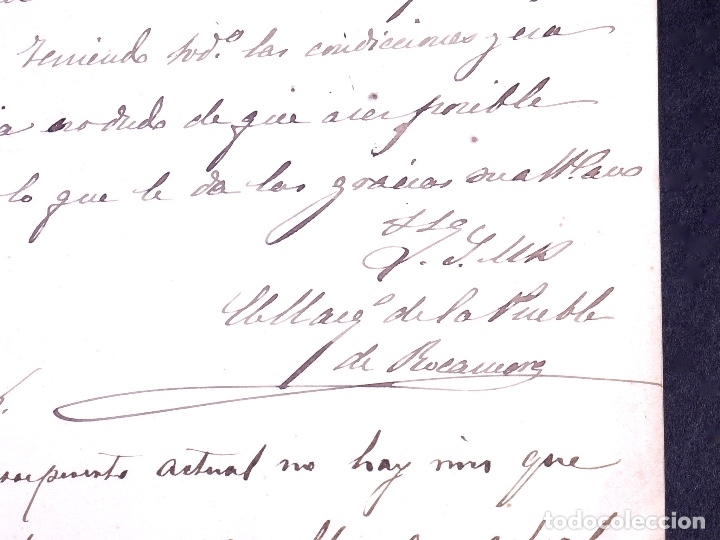 Teniendo tod.º las condiciones y era
no dudo de que a ser posible
lo que le da las gracias su att.º
L. S. M.
El Marq.º de la Puebla
de Rocamora
presupuesto actual no hay mas que
todocoleccion
todocoleccion.net